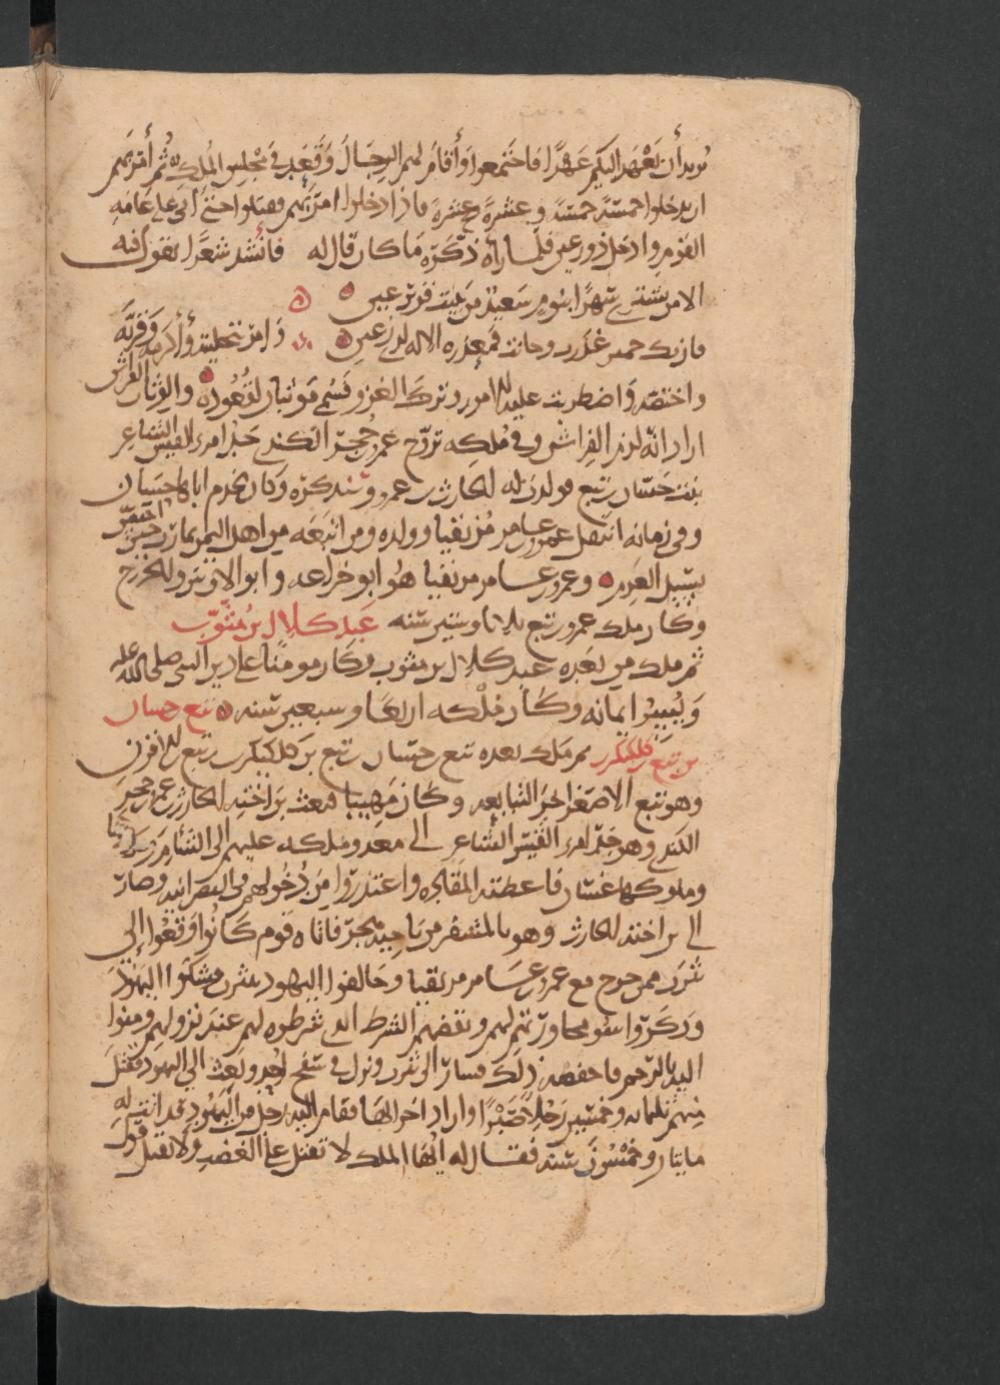 نريد أن يعهد اليكم عهدًا فاجتمعوا وأقام لهم الرجال وقعد في مجلس الملك ثم أمرهم
ان يدخلوا خمسة خمسة وعشرة عشرة فاذا دخلوا امر بهم فقتلوا حتى اتى على عامه
القوم وادخل ذو رعين فلما راه ذكره ما كان قال له فانشد شعرًا يقول فيه
الا من يشتري سهرًا بنوم سعيد من يبيت قرير عين
فان تك حمير غدرت وحانت فمعذره الاله لذي رعين ٥ فامر بتخليته وأكرمه وقربه
واختصه واضطربت عليه الامور وترك الغزو فسمي موثبان لقعوده والوثاب الفراش
ارادانه لزم الفراش وفي ملكه تزوج عمرو بن حجر الكندي جد امرء القيس الشاعر
بنت حسان بن تبع فولدت له الحارث بن عمرو وسنذكره وكان يخدم اباها حسان
وفي زمانه انتقل عمرو بن عامر مزيقيا وولده ومن اتبعه من اهل اليمن بمارب حين
بسيل العرم ٥ وعمرو بن عامر مزيقيا هو ابو خزاعه وابو الاوس والخزرج
وكان ملك عمرو بن تبع ثلاثا وستين سنه عبد كلال بن مثوب
ثم ملك من بعده عبد كلال بن مثوب وكان مومنًا على دين النبي صلى الله عليه
ويسر ايمانه وكان ملكه اربعا وسبعين سنه ٥ تبع حسان
بن تبع كليكرب ثم ملك بعده تبع حسان بن تبع بن كليكرب بن تبع الاقرن
وهو تبع الاصغر اخر التبابعه وكان مهيبا فبعث بن اخته الحارث بن عمرو بن حجر
الكندي وهو جد امرء القيس الشاعر الى معد وملكه عليهم الى الشام
وملوكها غسان فاعطته المقاده واعتذروا من دخولهم في النصرانيه وصار
الى بن اخته الحارث وهو بالمشقر من ناحيه هجر فاتاه قوم كانوا وقعوا إلى
يثرب ممن خرج مع عمرو بن عامر مزيقيا وحالفوا اليهود بيثرب فشكوا اليهود
وذكروا سو مجاورتهم لهم ونقضهم الشرط الذي شرطوه لهم عند نزولهم ومتوا
اليه بالرحم فاحفظه ذلك فسار الى يثرب ونزل في سفح احد وبعث الى اليهود فقتل
منهم ثلثمائه وخمسين رجلًا صبرًا واراد اخرابها فقام اليه رجل من اليهود قد اتت له
مايتان وخمسون سنه فقال له ايها الملك لا تقتل على الغضب ولا تقبل قول